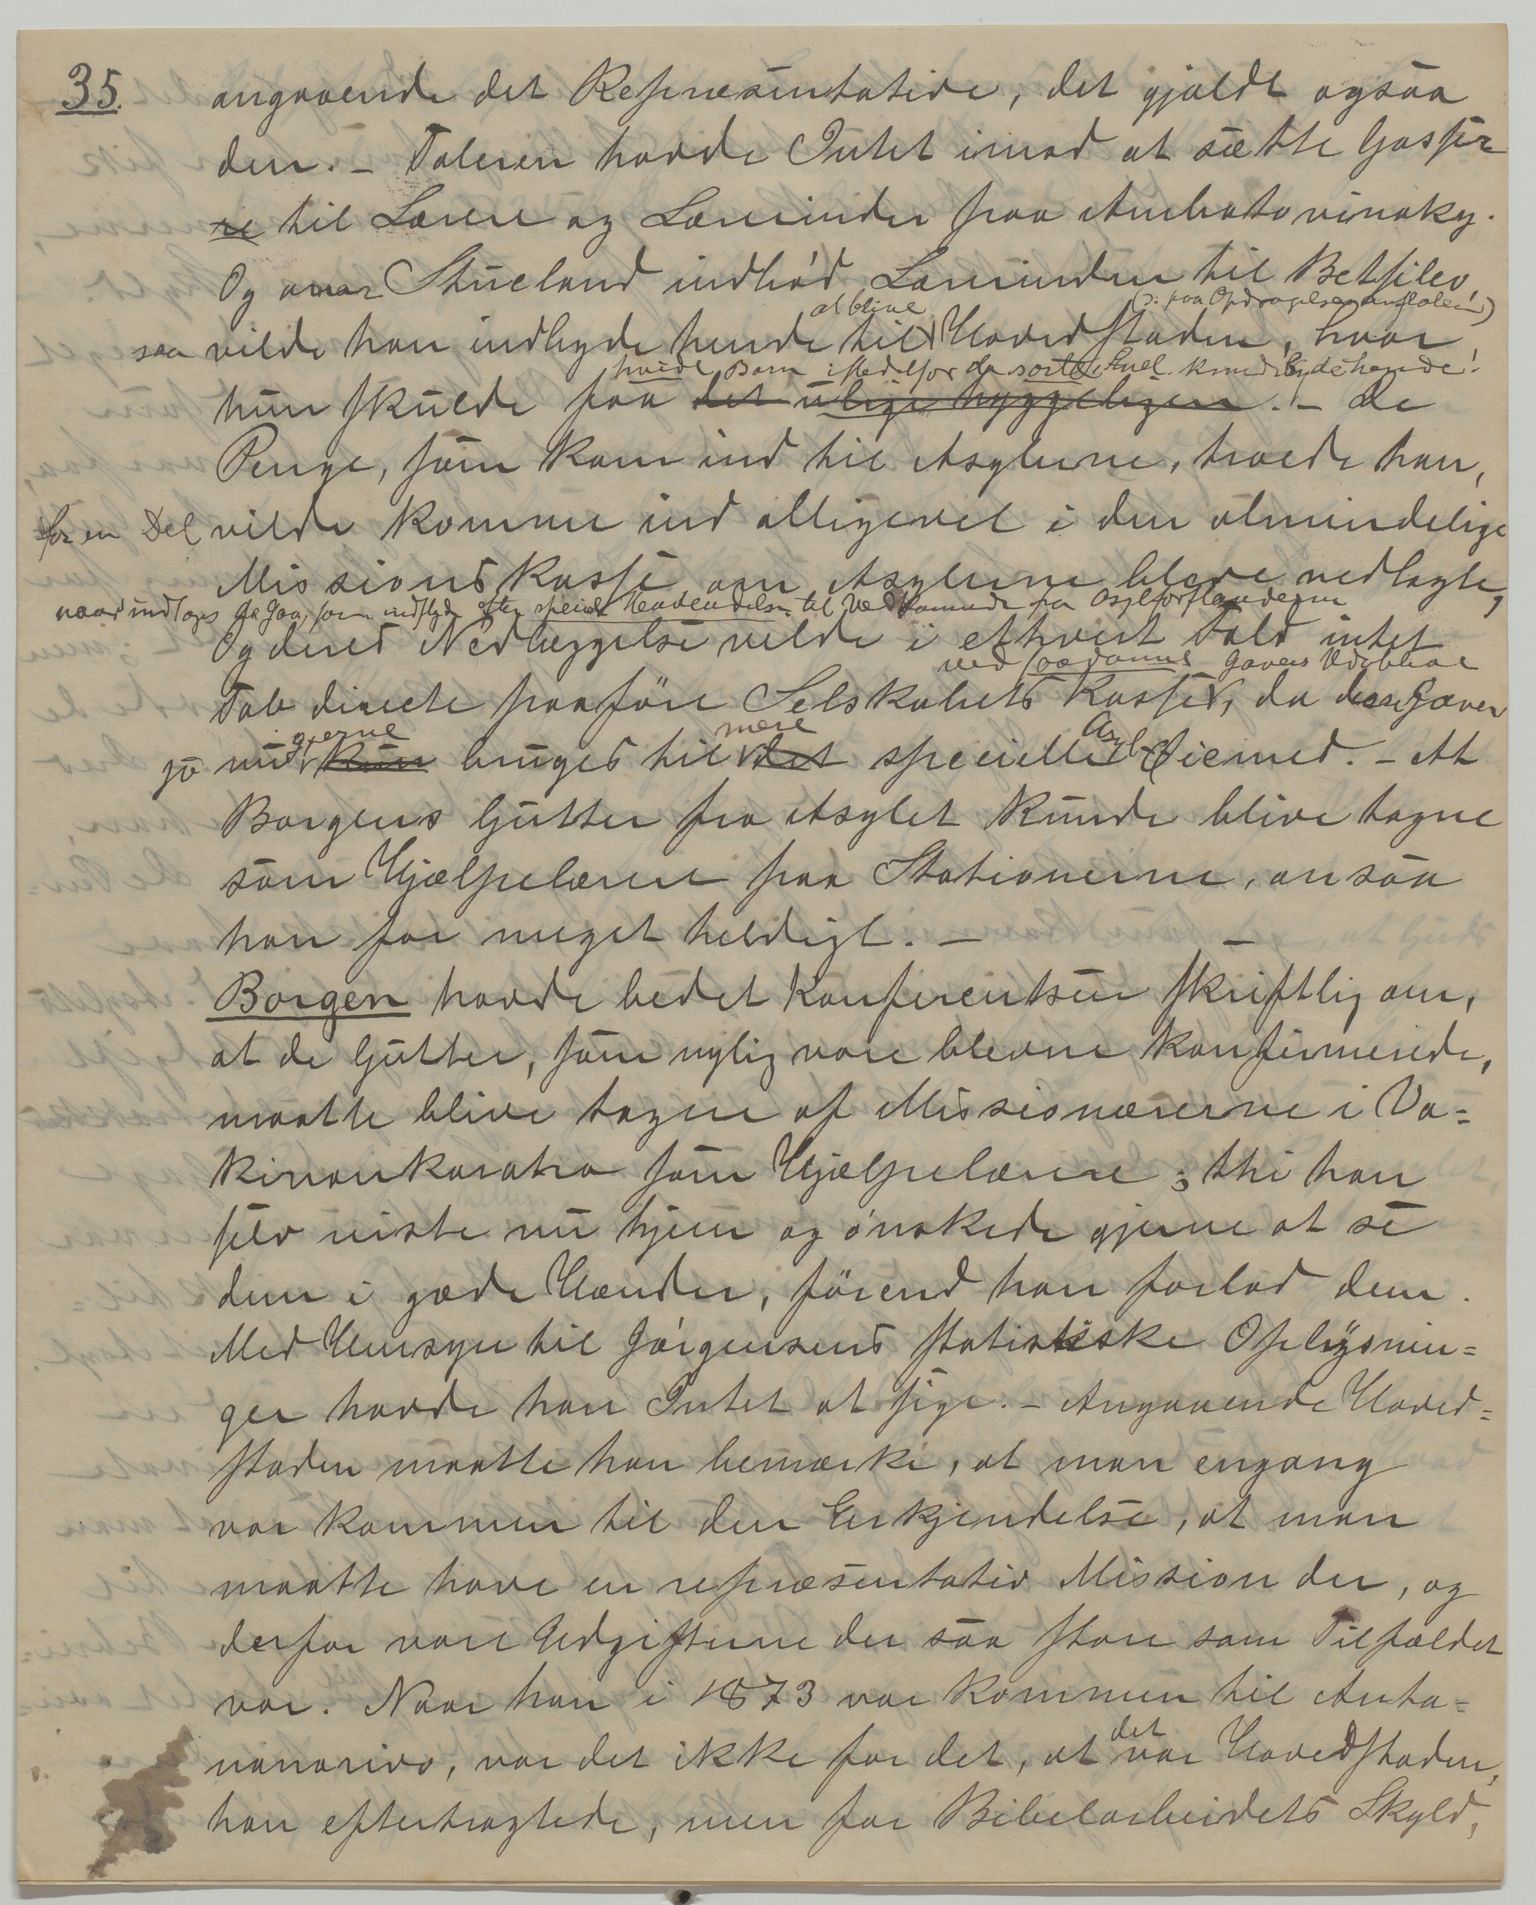 35. angaaende det Repræsentative, det gjaldt ogsaa
den. – Taleren havde Intet imod at sætte Gasser
re til Lærere og Lærerinder paa Ambatovinaky.
Og naar Stueland indbød Lærerinden til Betsileo,
at blive (ɔ: paa Opdragelsesanstalten)
saa vilde han indbyde hende til Hovedstaden, hvor
hvide Børn istedetfor de sorte
hun skulde faa det ulige hyggeligere. – De
Penge, som kom ind til Asylerne, troede han,
for en Del vilde komme ind alligevel i den almindelige
Missionskasse om Asylerne bleve nedlagte,
naar undtages de som indflyde efter speciel Henvendelse til Vedkommende fra Asylforstanderne
Og deres Nedlæggelse vilde i ethvert Fald intet
ved saadanne Gavers Udeblive
Tab directe paaføre Selskabets Kasse, da den Gaver
gjerne mere Asyl
jo nu kun bruges til det specielle Øiemed. – At
Borgens Gutter fra Asylet kunde blive tagne
som Hjælpelærere paa Stationerne, ansaa
han for meget heldigt. – –
Borgen havde bedet Konferentsen skriftlig om,
at de Gutter, som nylig vare blevne konfirmerede,
maatte blive tagne af Missionærerne i Va=
kinankaratra som Hjælpelærere; thi han
selv reiste nu hjem og ønskede gjerne at se
dem i gode Hænder, førend han forlod dem.
Med Hensyn til Jørgensens statistiske Oplysnin=
ger havde han Intet at sige. – Angaaende Hoved=
staden maatte han bemærke, at man engang
var kommen til den Erkjendelse, at man
maatte have en repræsentativ Mission der, og
derfor vare Udgifterne der saa store som Tilfældet
var. Naar han i 1873 var kommen til Anta=
det
nanarivo, var det ikke for det, at var Hovedstaden,
han eftertragtede, men for Bibelarbeidets Skyld,